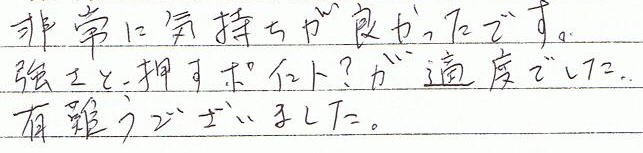 非常に気持ちが良かったです。
強さと押すポイント?が適度でした。
有難うございました。